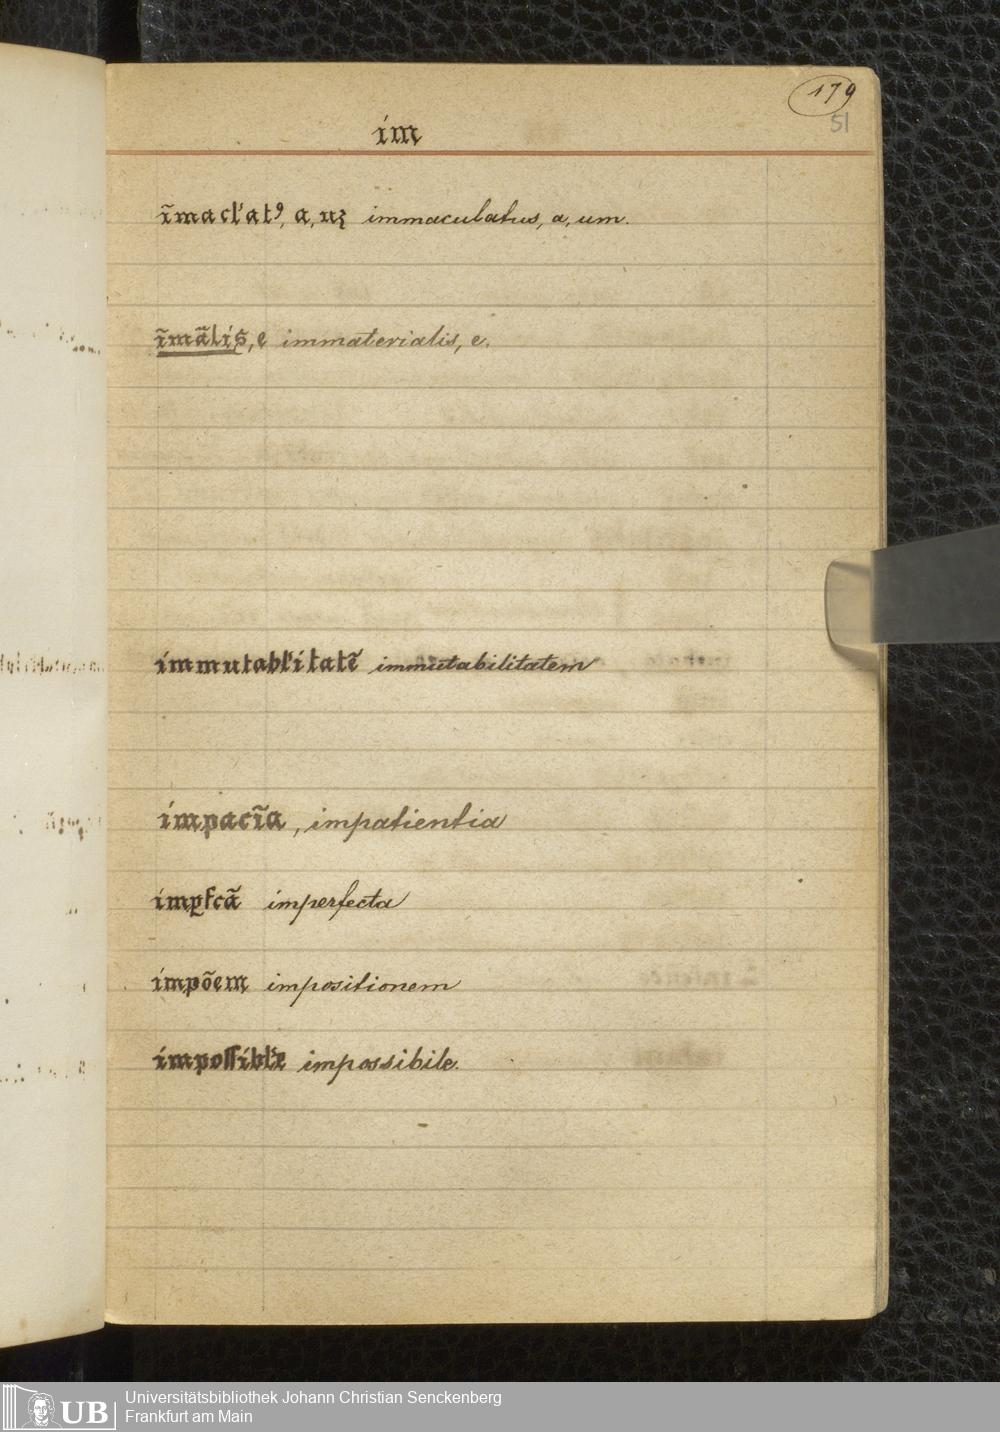 179
51
im
ĩmacl'atꝰ, a, uꝫ immaculatus, a, um.
ĩmãlis, e immaterialis, e.
immutabl'itatẽ immutabilitatem
impacĩa, impatientia
imꝑfcã imperfecta
impõem impositionem
impossibl'e impossibile.
UB
Universitätsbibliothek Johann Christian Senckenberg
Frankfurt am Main